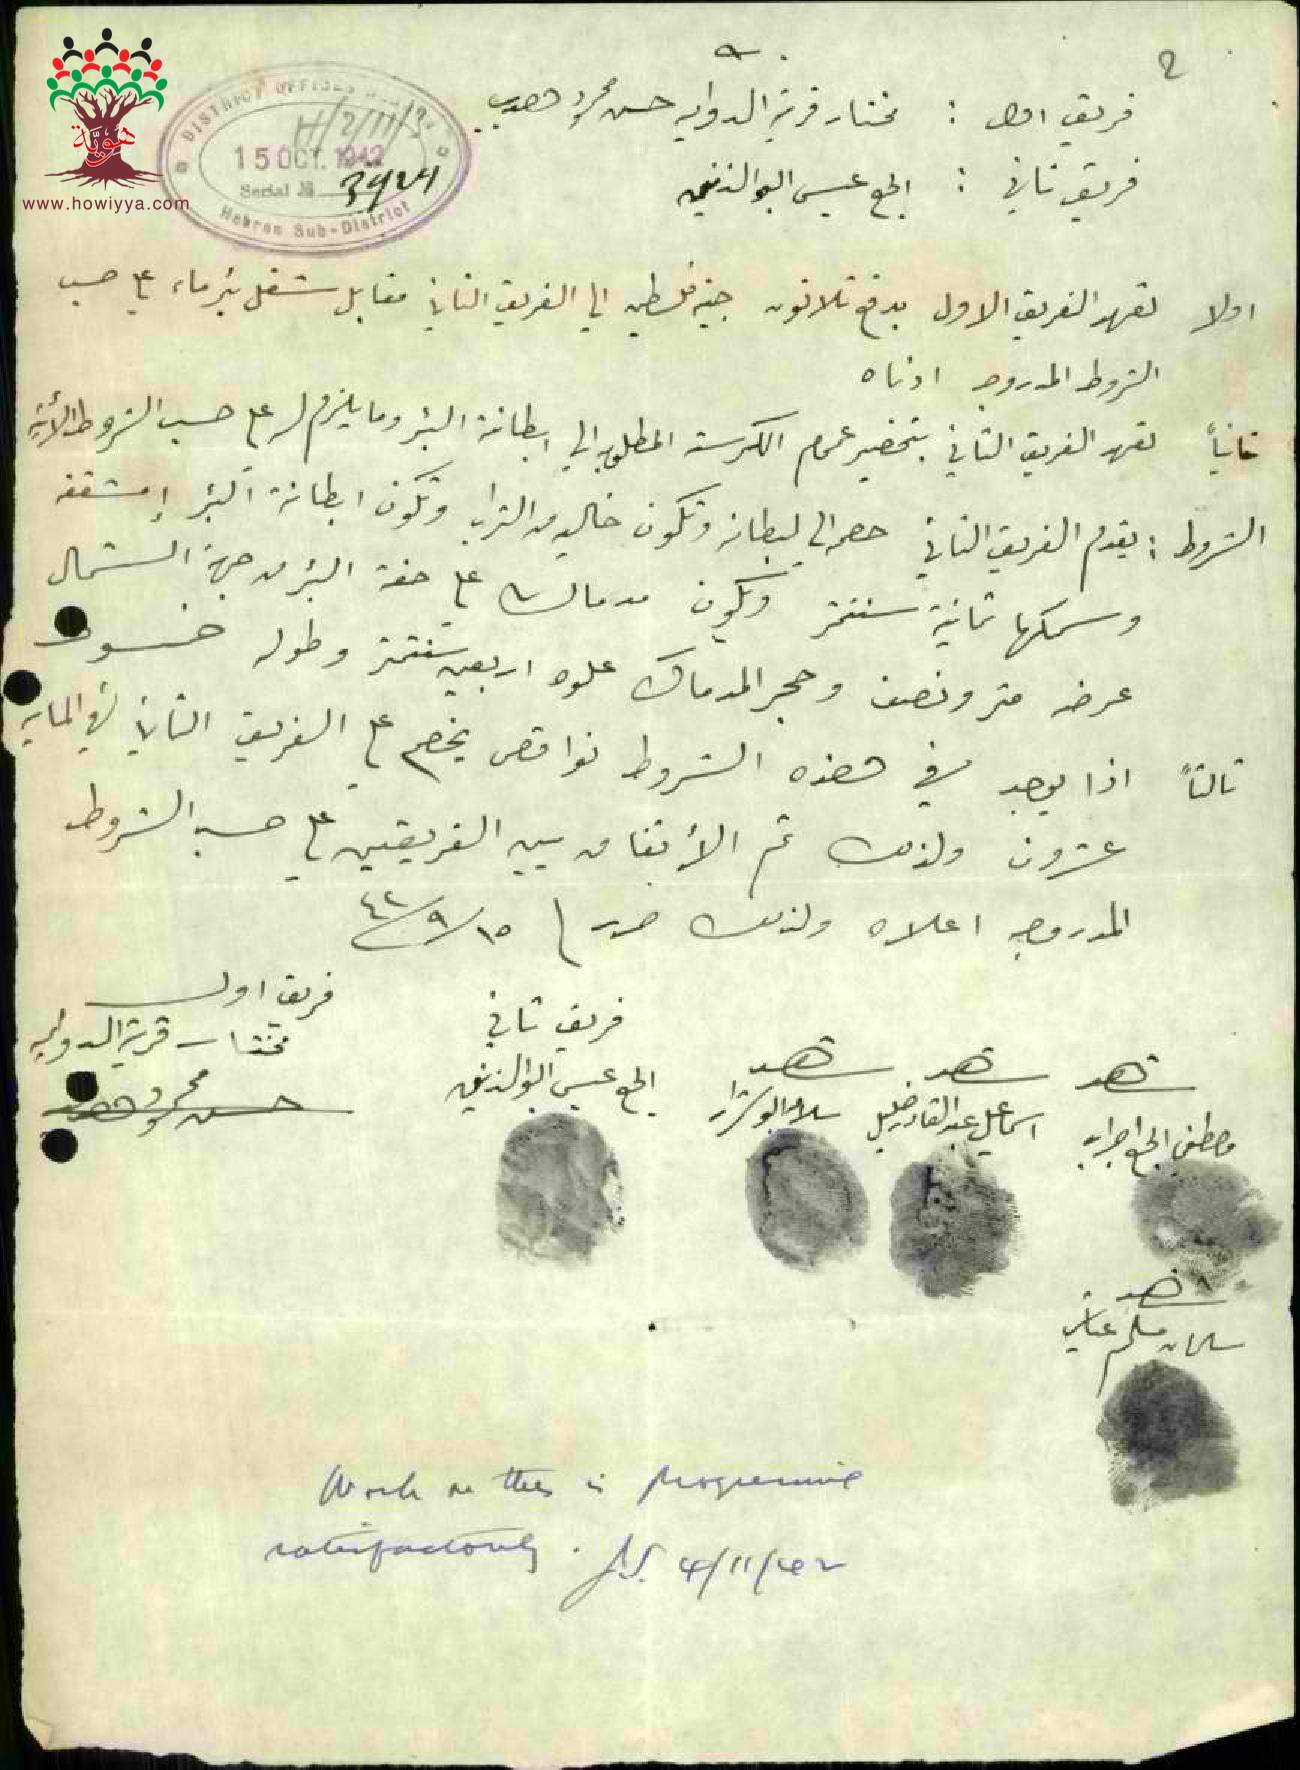 هويّة
www.howiyya.com
DISTRICT OFFICES
H/2/11/
15 OCT. 1942
Serial №
3924
Hebron Sub-District
2
فريق اول : مختار قرية الدوايمه حسن محمود هديب
فريق ثاني : الحج عيسى
اولا تعهد الفريق الاول بدفع ثلاثون جنيه فلسطيني الى الفريق الثاني مقابل شغل بئر ماء على حسب
الشروط المدروجه ادناه
ثانياً تعهد الفريق الثاني بتحضير عموم الكرسته المطلوبه الى ابطانة البئر وما يلزم له على حسب الشروط الأتيه
الشروط : يقدم الفريق الثاني الى لبطانه وتكون خاليه من التراب وتكون ابطانة البئر إمشقفه
وسمكها ثمانية سنتمتر ويكون مدماك على حفة البئر من جهة الشمال
عرضه متر ونصف وحجر المدماك علوه اربعين سنتمتر وطوله خمسون
ثالثاً اذا يوجد في هذه الشروط نواقص يخصم على الفريق الثاني في المايه
عشرون ولذلك تم الأتفاق بين الفريقين على حسب الشروط
المدروجه اعلاه ولذلك حرر ١٥/٩/٤٢
فريق اول
مختار قرية الدوايمه
حسن محمود هديب
فريق ثاني
الحج عيسى
شهد
شهد
اسماعيل عبد القادر خليل
شهد
مصطفى الحج
شهد
سلمان مسلم
Work on this is progressing
satisfactorily. J.S. 4/11/42